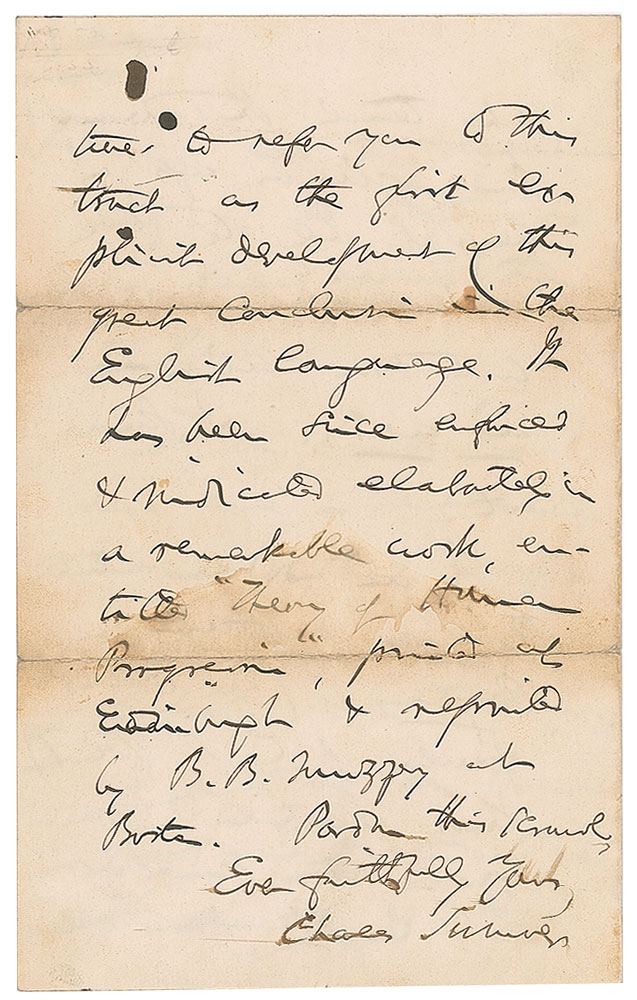 time, to refer you to this
tract as the first ex
plicit development of this
great conclusion in the
English language. It
has been since enforced
& vindicated elaborately in
a remarkable work, en-
titled "Theory of Human
Progression", printed at
Edinburgh & reprinted
by B. B. Muzzey at
Boston. Pardon this scrawl,
Ever faithfully Yours,
Charles Sumner